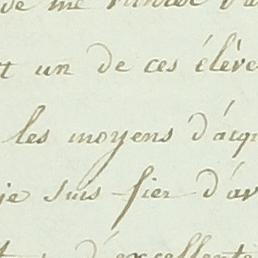 de me
t un de ces élève
les moyens d'acq
je suis fier d'av
d'excellente